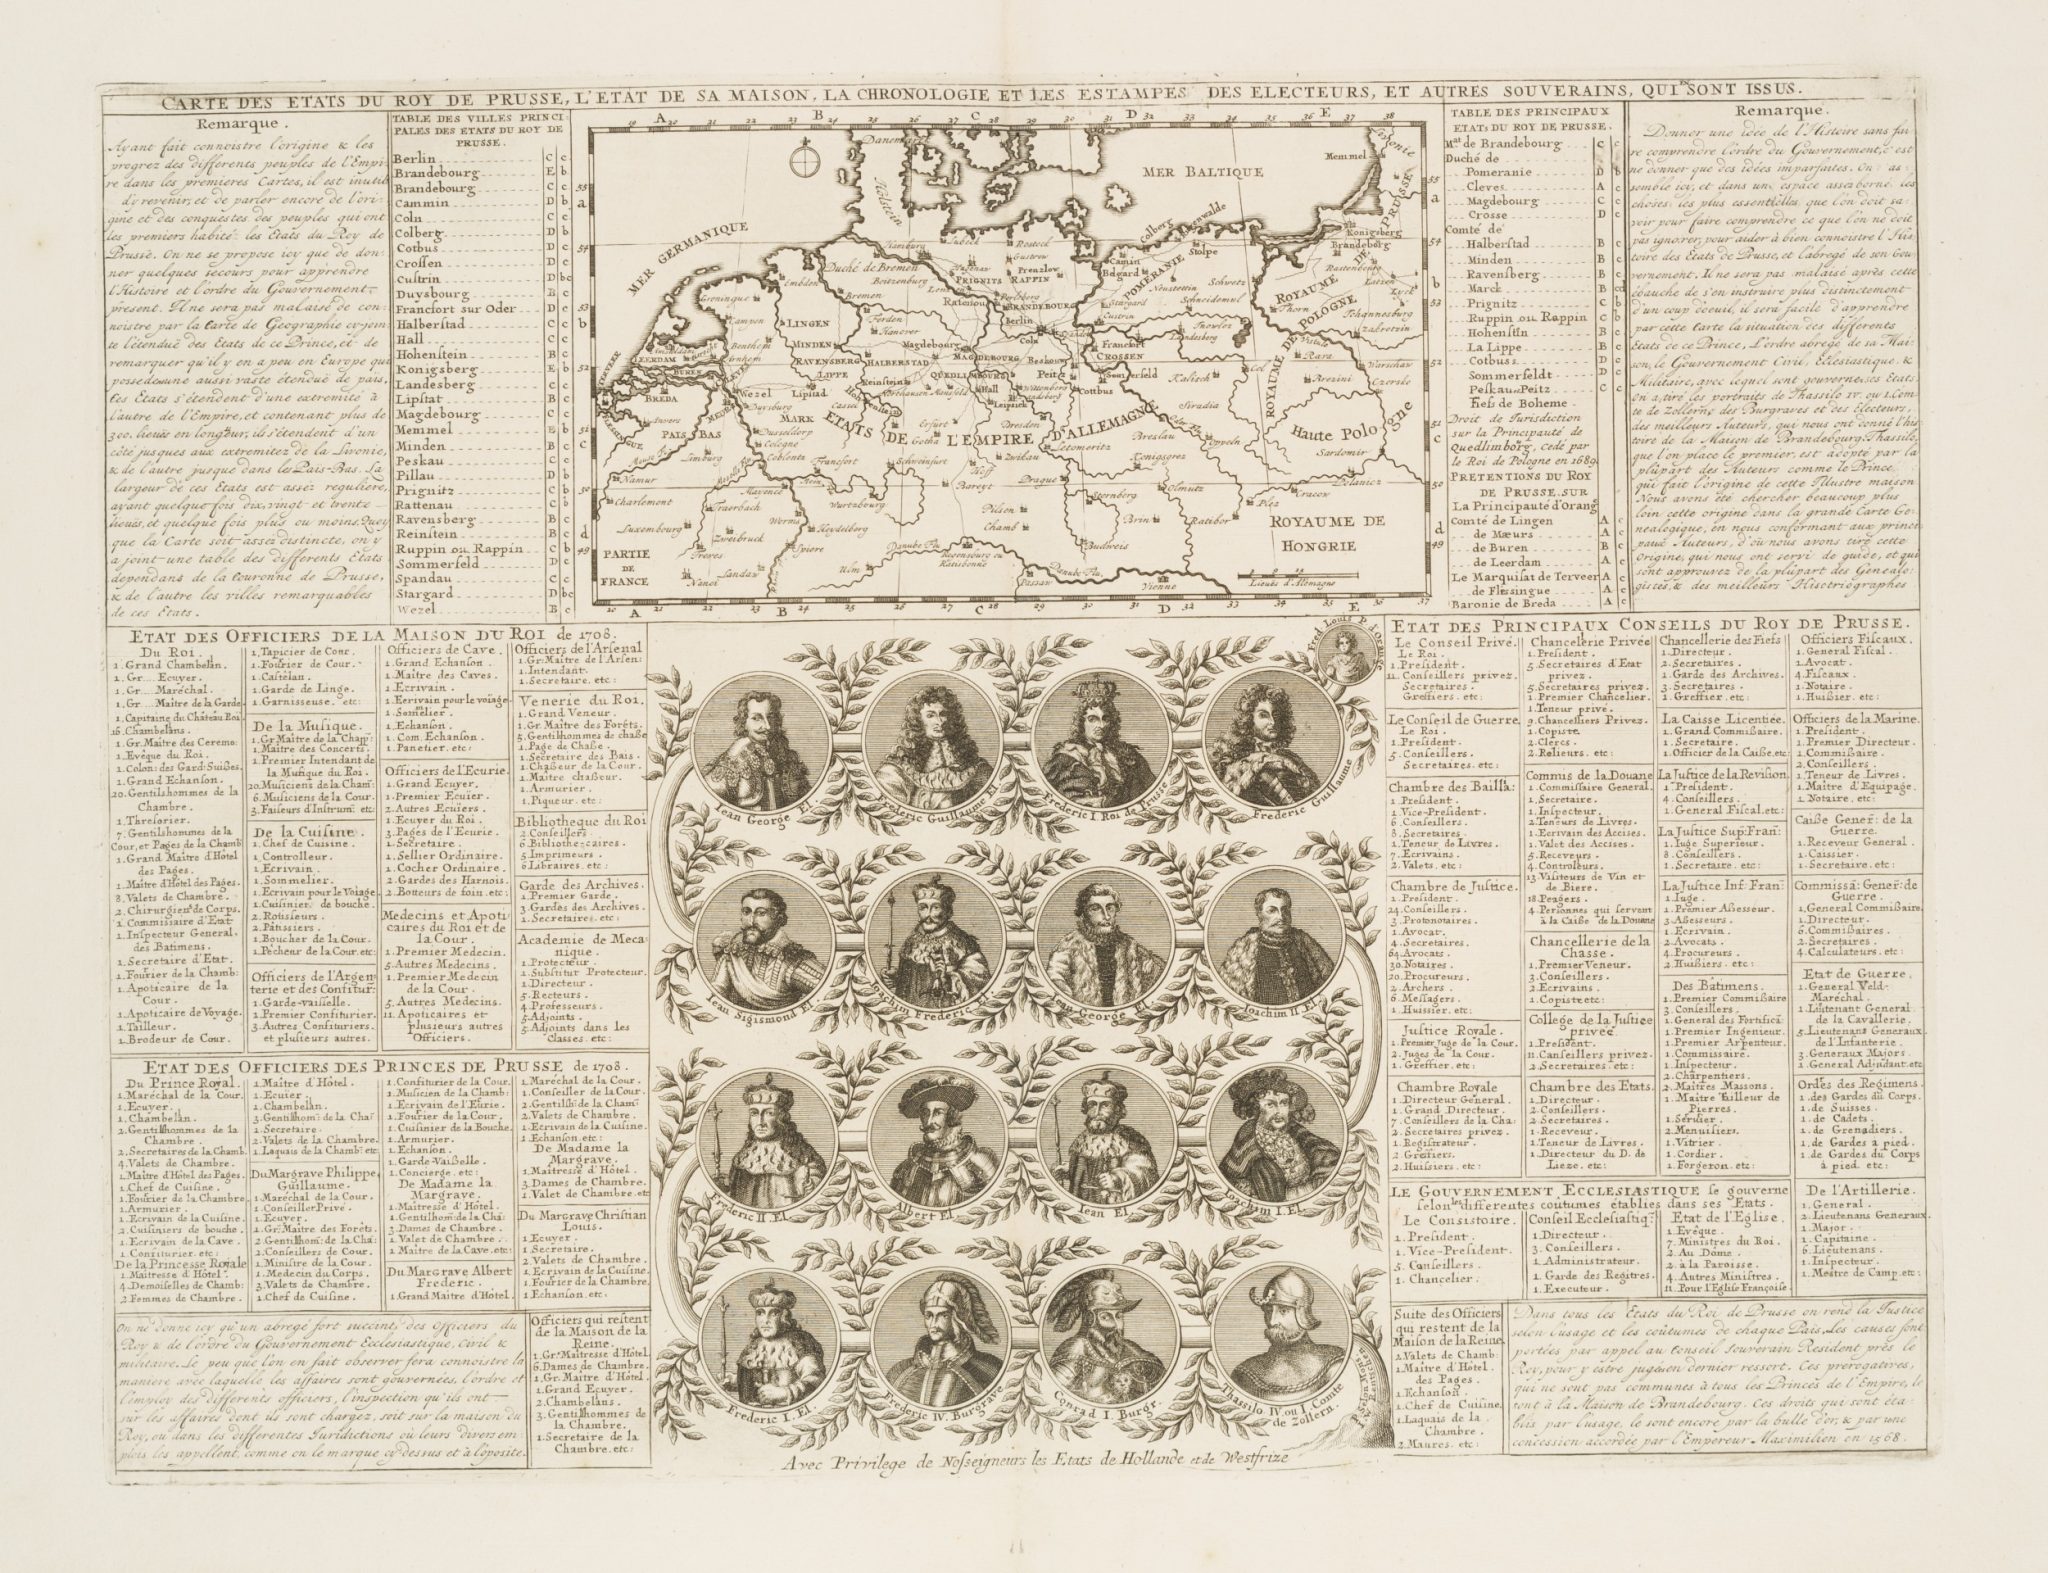 CARTE DES ETATS DU ROY DE PRUSSE, L'ETAT DE SA MAISON, LA CHRONOLOGIE ET LES ESTAMPES DES ELECTEURS, ET AUTRES SOUVERAINS, QUI EN SONT ISSUS.
Remarque.
Ayant fait connoistre l'origine & les
progrez des differents peuples de l'Empi-
re dans les premieres Cartes, il est inutile
d'y revenir, et de parler encore de l'ori-
gine et des conquestes des peuples qui ont
les premiers habité les Etats du Roy de
Prusse. On ne se propose icy que de don-
ner quelques secours pour apprendre
l'Histoire et l'ordre du Gouvernement
present. Il ne sera pas malaisé de con-
noistre par la Carte de Geographie cy-join-
te l'étenduë des Etats de ce Prince, et de
remarquer qu'il y en a peu en Europe qui
possede une aussi vaste étenduë de païs,
Ces Etats s'étendent d'une extremité à
l'autre de l'Empire, et contenant plus de
300. lieuës en longeur, ils s'étendent d'un
côté jusques aux extremitez de la Livonie,
& de l'autre jusque dans les Païs-Bas. La
largeur de ces Etats est assez reguliere,
ayant quelque fois dix, vingt et trente
lieuës, et quelque fois plus ou moins. Quoy
que la Carte soit assez distincte, on y
a joint une table des differents Etats
dependans de la Couronne de Prusse,
& de l'autre les villes remarquables
de ces Etats.
TABLE DES VILLES PRINCI-
PALES DES ETATS DU ROY DE
PRUSSE.
Berlin C c
Brandebourg E b
Brandebourg C c
Cammin D b
Coln C c
Colberg D b
Cotbus D c
Crossen D c
Custrin D bc
Duysbourg B c
Francfort sur Oder D c
Halberstad C c
Hall C c
Hohenstein B c
Konigsberg E b
Landesberg D c
Lipstat B c
Magdebourg C c
Memmel E b
Minden B c
Peskau C c
Pillau D b
Prignitz C b
Rattenau C b
Ravensberg B c
Reinstein B c
Ruppin ou Rappin C b
Sommerfeld D c
Spandau C c
Stargard D bc
Wezel B c
MER GERMANIQUE
MER BALTIQUE
Danemarc
Holstein
Memmel
Konigsberg
Brandeberg
Hamburg
Lubeck
Rostock
Gustrow
Prenzlow
RAPPIN
PRIGNITS
Duché de Bremen
Bremen
Embden
Groningue
LINGEN
MINDEN
RAVENSBERG
LIPPE
HALBERSTAD
MAGDEBOURG
QUEDLIMBOURG
BRANDEBOURG
Berlin
Coln
POMERANIE
Stolpe
Camin
Stargard
Custrin
Francfort
CROSSEN
Cotbus
ROYAUME DE POLOGNE
ROYAUME DE PRUSSE
Thorn
Warschau
Haute Pologne
Sandomir
BREDA
Anvers
PAIS BAS
MARK
Wezel
Duysburg
Dusseldorp
Cologne
Coblentz
Limburg
Namur
Charlemont
Luxembourg
ETATS DE L'EMPIRE D'ALLEMAGNE
Erfurt
Gotha
Dresden
Leipzick
Zwikau
Breslau
Konigsgrez
Letomeritz
Prague
Pilsen
Chamb
Sternberg
Olmutz
Brin
Ratibor
Budweis
Cracow
Francfort
Schweinfurt
Wurtzbourg
Mayence
Worms
Heydelberg
Spiere
Treves
Zweibruck
Landau
Nancy
Ulm
Danube Flu.
Regensbourg ou
Ratisbonne
Passau
Danube Flu.
Vienne
PARTIE
DE
FRANCE
ROYAUME DE
HONGRIE
Lieuës d'Allemagne
TABLE DES PRINCIPAUX
ETATS DU ROY DE PRUSSE.
Mat de Brandebourg C c
Duché de
Pomeranie D b
Cleves A c
Magdebourg C c
Crosse D c
Comté de
Halberstad B c
Minden B c
Ravensberg B c
Marck B cd
Prignitz C b
Ruppin ou Rappin C b
Hohenstein B c
La Lippe B c
Cotbuss D c
Sommerfeldt D c
Peskau et Peitz C c
Fiefs de Boheme.
Droit de Jurisdiction
sur la Principauté de
Quedlimborg, cedé par
le Roi de Pologne en 1689.
PRETENTIONS DU ROY
DE PRUSSE SUR
La Principauté d'Orang
Comté de Lingen A c
de Mœurs A c
de Buren B c
de Leerdam A c
Le Marquisat de Terveer A c
de Flessingue A c
Baronie de Breda A c
Remarque.
Donner une idée de l'Histoire sans fai-
re comprendre l'ordre du Gouvernement, c'est
ne donner que des idées imparfaites. On as-
semble icy, et dans un espace assez borné, les
choses les plus essentielles que l'on doit sa-
voir pour faire comprendre ce que l'on ne doit
pas ignorer, pour aider à bien connoistre l'His-
toire des Etats de Prusse, et l'abregé de son Gou-
vernement. Il ne sera pas malaisé après cette
ébauche de s'en instruire plus distinctement
d'un coup d'œuil, il sera facile d'aprendre
par cette Carte la situation des differents
Etats de ce Prince, L'ordre abregé de sa Mai-
son, le Gouvernement Civil, Eclesiastique &
Militaire, avec lequel sont gouvernés ses Etats.
On a tiré les portraits de Thassilo IV. ou I. Com-
te de Zollern, des Burgraves et des Electeurs,
des meilleurs Auteurs, qui nous ont donné l'his-
toire de la Maison de Brandebourg. Thassilo,
que l'on place le premier, est adopté par la
plûpart des Auteurs comme le Prince
qui fait l'origine de cette Illustre maison
Nous avons été chercher beaucoup plus
loin cette origine dans la grande Carte Ge-
nealogique, en nous conformant aux princi-
paux Auteurs, d'où nous avons tiré cette
Origine, qui nous ont servi de guide, et qui
sont approuvez de la plûpart des Genealo-
gistes, & des meilleurs Historiographes
ETAT DES OFFICIERS DE LA MAISON DU ROI de 1708.
Du Roi.
1. Grand Chambelan.
1. Gr.... Ecuyer.
1. Gr.... Maréchal.
1. Gr.... Maitre de la Garde
1. Capitaine du Château Roi
16. Chambelans.
1. Gr. Maitre des Ceremo:
1. Evêque du Roi.
1. Colon: des Gard: Suisses.
1. Grand Echanson.
20. Gentilshommes de la
Chambre.
1. Thresorier.
7. Gentilshommes de la
Cour, et Pages de la Chamb
1. Grand Maitre d'Hôtel
des Pages.
1. Maitre d'Hôtel des Pages.
8. Valets de Chambre.
2. Chirurgiens de Corps.
1. Commissaire d'Etat
1. Inspecteur General
des Batimens.
1. Secretaire d'Etat.
1. Fourier de la Chamb:
1. Apoticaire de la
Cour.
1. Apoticaire de Voyage.
1. Tailleur.
1. Brodeur de Cour.
1. Tapicier de Cour.
1. Fourier de Cour.
1. Castelan.
1. Garde de Linge.
1. Garnisseuse. etc:
De la Musique.
1. Gr Maitre de la Chapp:
1. Maitre des Concerts.
1. Premier Intendant de
la Musique du Roi.
20. Musiciens de la Cham:
6. Musiciens de la Cour.
3. Faiseurs d'Instrum: etc:
De la Cuisine.
1. Chef de Cuisine.
1. Controlleur.
1. Ecrivain.
1. Sommelier.
1. Ecrivain pour le Voiage
1. Cuisinier de bouche.
2. Rotisseurs.
2. Pâtissiers.
1. Boucher de la Cour.
1. Pêcheur de la Cour. etc:
Officiers de l'Argen-
terie et des Confitur:
1. Garde-vaisselle.
1. Premier Confiturier.
3. Autres Confituriers.
et plusieurs autres.
Officiers de Cave.
1. Grand Echanson.
1. Maitre des Caves.
1. Ecrivain.
1. Ecrivain pour le voiage
1. Somelier.
1. Echanson.
1. Com. Echanson.
1. Panetier. etc:
Officiers de l'Ecurie.
1. Grand Ecuyer.
1. Premier Ecuier.
2. Autres Ecuïers.
1. Ecuyer du Roi.
3. Pages de l'Ecurie.
1. Secretaire.
1. Sellier Ordinaire.
1. Cocher Ordinaire.
2. Gardes des Harnois.
2. Botteurs de foin. etc:
Medecins et Apoti-
caires du Roi et de
la Cour.
1. Premier Medecin.
5. Autres Medecins.
1. Premier Medecin
de la Cour.
5. Autres Medecins.
11. Apoticaires et
plusieurs autres
Officiers.
Officiers de l'Arsenal
1. Gr: Maitre de l'Arsen:
1. Intendant.
1. Secretaire. etc:
Venerie du Roi.
1. Grand Veneur.
1. Gr. Maitre des Forêts.
5. Gentilhommes de chasse
1. Page de Chasse.
1. Secretaire des Bais.
1. Chasseur de la Cour.
1. Maitre chasseur.
1. Armurier.
1. Piqueur. etc:
Bibliotheque du Roi
2. Conseillers.
6. Bibliothecaires.
5. Imprimeurs.
6. Libraires. etc:
Garde des Archives.
1. Premier Garde.
3. Gardes des Archives.
1. Secretaires. etc:
Academie de Meca-
nique.
1. Protecteur.
1. Substitut Protecteur.
1. Directeur.
5. Recteurs.
4. Professeurs.
5. Adjoints.
5. Adjoints dans les
Classes. etc:
ETAT DES OFFICIERS DES PRINCES DE PRUSSE de 1708.
Du Prince Royal.
1. Maréchal de la Cour.
1. Ecuyer.
1. Chambelan.
2. Gentilshommes de la
Chambre.
2. Secretaires de la Chamb.
4. Valets de Chambre.
1. Maitre d'Hôtel des Pages.
1. Chef de Cuisine.
1. Fourier de la Chambre
1. Armurier.
1. Ecrivain de la Cuisine.
2. Cuisiniers de bouche.
1. Ecrivain de la Cave.
1. Confiturier. etc:
De la Princesse Royale
1. Maitresse d'Hôtel.
4. Demoiselles de Chamb:
2. Femmes de Chambre.
1. Maitre d'Hôtel.
1. Ecuier.
1. Chambelan.
3. Gentilhom: de la Cha:
1. Secretaire.
2. Valets de la Chambre.
1. Laquais de la Chamb: etc:
Du Margrave Philippe
Guillaume.
1. Maréchal de la Cour.
1. Conseiller Privé.
1. Ecuyer.
1. Gr. Maitre des Forêts.
2. Gentilhom: de la Cha:
2. Conseillers de Cour.
1. Ministre de la Cour.
1. Medecin du Corps.
3. Valets de Chambre.
1. Chef de Cuisine.
1. Confiturier de la Cour.
1. Musicien de la Chamb:
1. Ecrivain de l'Eurie.
1. Fourier de la Cour.
1. Cuisinier de la Bouche.
1. Armurier.
1. Echanson.
1. Garde-Vaisselle.
1. Concierge. etc:
De Madame la
Margrave.
1. Maitresse d'Hôtel.
1. Gentilhom: de la Cha:
2. Dames de Chambre.
1. Valet de Chambre.
1. Maitre de la Cave. etc:
Du Margrave Albert
Frederic.
1. Grand Maitre d'Hôtel.
1. Maréchal de la Cour.
1. Conseiller de la Cour.
2. Gentilsh: de la Cham:
2. Valets de Chambre.
1. Ecrivain de la Cuisine.
1. Echanson. etc:
De Madame la
Margrave.
1. Maitresse d'Hôtel.
3. Dames de Chambre.
1. Valet de Chambre. etc
Du Margrave Christian
Louis.
1. Ecuyer.
1. Secretaire.
2. Valets de Chambre.
1. Ecrivain de la Cuisine.
1. Fourier de la Chambre.
1. Echanson. etc:
On ne donne icy qu'un abregé fort succint des Officiers du
Roy & de l'ordre du Gouvernement Ecclesiastique, Civil &
militaire. Le peu que l'on en fait observer fera connoistre la
maniere avec laquelle les affaires sont gouvernées, l'ordre et
l'employ des differents officiers, l'inspection qu'ils ont
sur les affaires dont ils sont chargez, soit sur la maison du
Roy, ou dans les differentes Juridictions où leurs divers em-
plois les appellent, comme on le marque cy-dessus et à l'oposite.
Officiers qui restent
de la Maison de la
Reine.
1. Gr. Maitresse d'Hôtel.
6. Dames de Chambre.
1. Gr. Maitre d'Hôtel.
1. Grand Ecuyer.
2. Chambelans.
3. Gentilshommes de
la Chambre.
1. Secretaire de la
Chambre. etc:
Fred. Louis P. d'Orange
Iean George El.
Frederic Guillaume El.
Frederic I Roi de Prusse
Frederic Guillaume
Iean Sigismond El.
Joachim Frederic El.
Jean George El.
Joachim II El.
Frederic II. El.
Albert El.
Iean El.
Joachim I. El.
Frederic I. El.
Frederic IV. Burgrave
Conrad I. Burgr.
Thassilo IV. ou I. Comte
de Zollern.
Avec Privilege de Nosseigneurs les Etats de Hollande et de Westfrize
ETAT DES PRINCIPAUX CONSEILS DU ROY DE PRUSSE.
Le Conseil Privé.
Le Roi.
1. President.
11. Conseillers privez.
Secretaires.
Greffiers. etc:
Le Conseil de Guerre.
Le Roi.
1. President.
5. Conseillers.
Secretaires. etc:
Chambre des Bailla:
1. President.
1. Vice-President.
6. Conseillers.
8. Secretaires.
1. Teneur de Livres.
7. Ecrivains.
4. Valets. etc:
Chambre de Justice.
1. President.
24. Conseillers.
3. Protonotaires.
1. Avocat.
4. Secretaires.
64. Avocats.
30. Notaires.
20. Procureurs.
2. Archers.
6. Messagers.
1. Huissier. etc:
Justice Royale.
1. Premier Juge de la Cour.
2. Juges de la Cour.
1. Greffier. etc:
Chambre Royale
1. Directeur General.
1. Grand Directeur.
7. Conseillers de la Cha:
2. Secretaires privez.
1. Registrateur.
2. Greffiers.
2. Huissiers. etc:
Chancelerie Privée
1. President.
5. Secretaires d'Etat
privez.
5. Secretaires privez.
1. Premier Chancelier.
1. Teneur privé.
9. Chancelliers Privez.
1. Copiste.
2. Clercs.
2. Relieurs. etc:
Commis de la Douane
1. Commissaire General.
1. Secretaire.
1. Inspecteur.
2. Teneurs de Livres.
1. Ecrivain des Accises.
1. Valet des Accises.
5. Receveurs.
4. Controleurs.
13. Visiteurs de Vin et
de Biere.
18. Peagers.
4. Personnes qui servent
à la Caisse de la Douane
Chancellerie de la
Chasse.
1. Premier Veneur.
3. Conseillers.
2. Ecrivains.
1. Copiste etc:
College de la Justice
privée.
1. President.
11. Conseillers privez.
2. Secretaires. etc:
Chambre des Etats.
1. Directeur.
2. Conseillers.
2. Secretaires.
1. Receveur.
1. Teneur de Livres.
1. Directeur du D. de
Lieze. etc:
Chancellerie des Fiefs
1. Directeur.
2. Secretaires.
1. Garde des Archives.
3. Secretaires.
1. Greffier. etc:
La Caisse Licentiée.
1. Grand Commissaire.
1. Secretaire.
1. Officier de la Caisse. etc:
La Justice de la Revision
1. President.
4. Conseillers.
1. General Fiscal. etc:
La Justice Sup: Fran:
1. Iuge Superieur.
8. Conseillers.
1. Secretaire. etc:
La Justice Inf: Fran:
1. Iuge.
1. Premier Assesseur.
3. Assesseurs.
1. Ecrivain.
2. Avocats.
4. Procureurs.
2. Huissiers. etc:
Des Batimens.
1. Premier Commissaire
3. Conseillers.
1. General des Fortificà:
1. Premier Ingenieur.
1. Premier Arpenteur.
1. Commissaire.
1. Inspecteur.
2. Charpentiers.
2. Maitres Massons.
1. Maitre Tailleur de
Pierres.
1. Serurier.
2. Menuisiers.
1. Vitrier.
1. Cordier.
1. Forgeron. etc:
Officiers Fiscaux.
1. General Fiscal.
2. Avocat.
4. Fiscaux.
1. Notaire.
1. Huissier. etc:
Officiers de la Marine.
1. President.
1. Premier Directeur.
1. Commissaire.
2. Conseillers.
1. Teneur de Livres.
1. Maitre d'Equipage.
1. Notaire. etc:
Caisse Gener: de la
Guerre.
1. Receveur General.
1. Caissier.
1. Secretaire. etc:
Commissà: Gener: de
Guerre.
1. General Commissaire.
1. Directeur.
6. Commissaires.
2. Secretaires.
4. Calculateurs. etc:
Etat de Guerre.
1. General Veld-
Maréchal.
1. Lieutenant General
de la Cavallerie.
5. Lieutenans Generaux
de l'Infanterie.
3. Generaux Majors.
1. General Adjudant. etc
Ordres des Regimens.
1. des Gardes du Corps.
1. de Suisses.
1. de Cadets.
1. de Grenadiers.
1. de Gardes à pied.
1. de Gardes du Corps
à pied. etc:
LE GOUVERNEMENT ECCLESIASTIQUE se gouverne
selon les differentes coûtumes établies dans ses Etats.
Le Consistoire.
1. President.
1. Vice-President.
5. Conseillers.
1. Chancelier.
Conseil Ecclesiastiq:
1. Directeur.
3. Conseillers.
1. Administrateur.
1. Garde des Regitres.
1. Executeur.
Etat de l'Eglise.
1. Evêque.
7. Ministres du Roi.
2. Au Dome.
2. à la Paroisse.
4. Autres Ministres.
11. Pour l'Eglise Françoise
De l'Artillerie.
1. General.
2. Lieutenans Generaux.
1. Major.
1. Capitaine.
6. Lieutenans.
1. Inspecteur.
1. Mestre de Camp. etc:
Suite des Officiers
qui restent de la
Maison de la Reine.
2. Valets de Chamb:
1. Maitre d'Hôtel
des Pages.
1. Echanson.
1. Chef de Cuisine.
1. Laquais de la
Chambre.
2. Maures. etc:
Dans tous les Etats du Roi de Prusse on rend la Justice
selon l'usage et les coûtumes de chaque Païs, les causes sont
portées par appel au Conseil Souverain Resident près le
Roy, pour y estre jugées en dernier ressort. Ces prerogatives,
qui ne sont pas communes à tous les Princes de l'Empire, le
sont à la Maison de Brandebourg. Ces droits qui sont éta-
blis par l'usage, le sont encore par la bulle d'or, & par une
concession accordée par l'Empereur Maximilien en 1568.